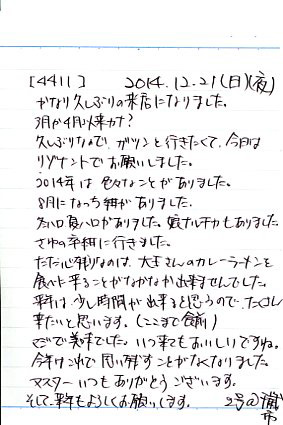 [4411] 2014.12.21(日)(夜)
かなり久しぶりの来店になりました。
3月か4月以来カナ?
久しぶりなので、ガツンと行きたくて、今日は
リゾナントでお願いしました。
2014年は色々なことがありました。
8月になっち紺がありました。
夏ハロがありました。ナルチカもありました。
さゆの卒紺に行きました。
ただ心残りなのは、大王さんのカレーラーメンを
食べに来ることがなかなか出来ませんでした。
来年は少し時間が出来ると思うので、たくさん
来たいと思います。(ここまで食前)
で美味でした。いつ来てもおいしいですね。
今年はこれで思い残すことがなくなりました。
マスターいつもありがとうございます。
そして、来年もよろしくお願いします。